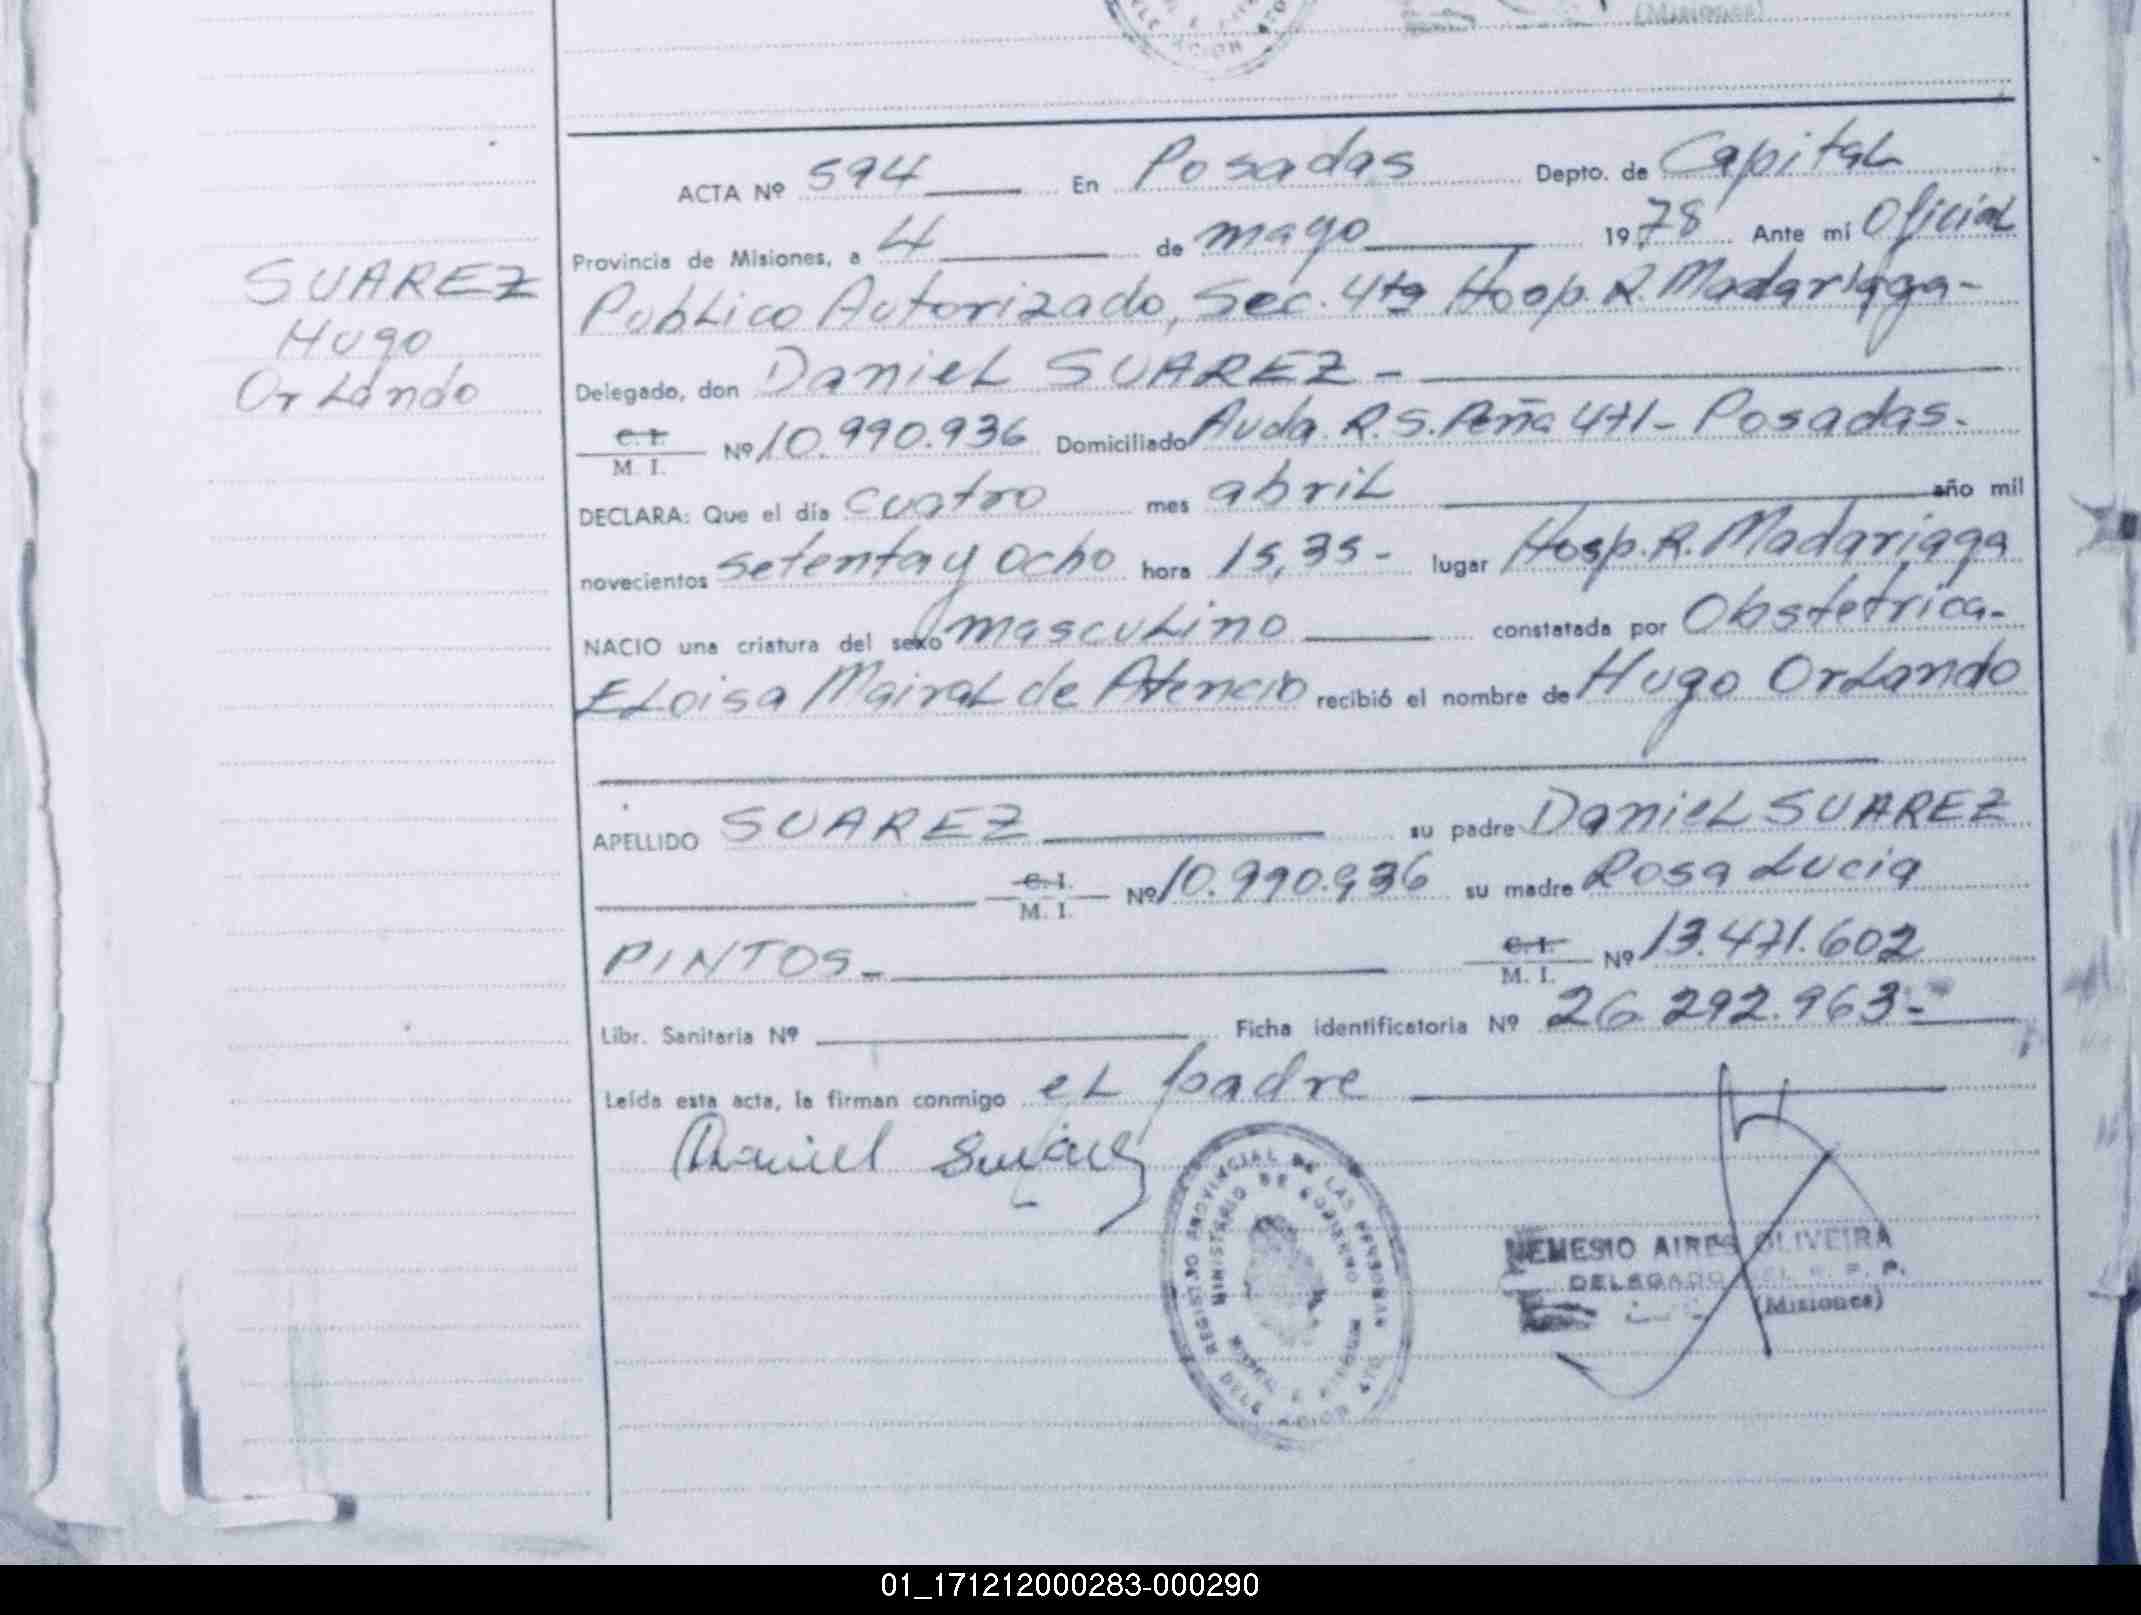 (Misiones)
ACTA Nº 594 En Posadas Depto. de Capital
Provincia de Misiones, a 4 de mayo 1978 Ante mi Oficial
Publico Autorizado, Sec. 4ta Hosp. R. Madariaga-
SUAREZ
Hugo
Orlando
Delegado, don Daniel SUAREZ -
C. I.
M. I.
Nº 10.990.936 Domiciliado Avda. R. S. Peña 471 - Posadas.
DECLARA: Que el día cuatro mes abril año mil
novecientos setenta y ocho hora 15,35 - lugar Hosp. R. Madariaga
NACIO una criatura del sexo masculino constatada por Obstetrica-
Eloisa Mairal de Atencio recibió el nombre de Hugo Orlando
APELLIDO SUAREZ su padre Daniel SUAREZ
C. I.
M. I.
Nº 10.990.936 su madre Rosa Lucia
PINTOS -
C. I.
M. I.
Nº 13.471.602
Libr. Sanitaria Nº Ficha identificatoria Nº 26.292.963-
Leída esta acta, la firman conmigo el padre
Daniel Suárez
REGISTRO PROVINCIAL DE LAS PERSONAS
MINISTERIO DE GOBIERNO
NEMESIO AIRES OLIVEIRA
DELEGADO DEL R. P. P.
(Misiones)
01_171212000283-000290